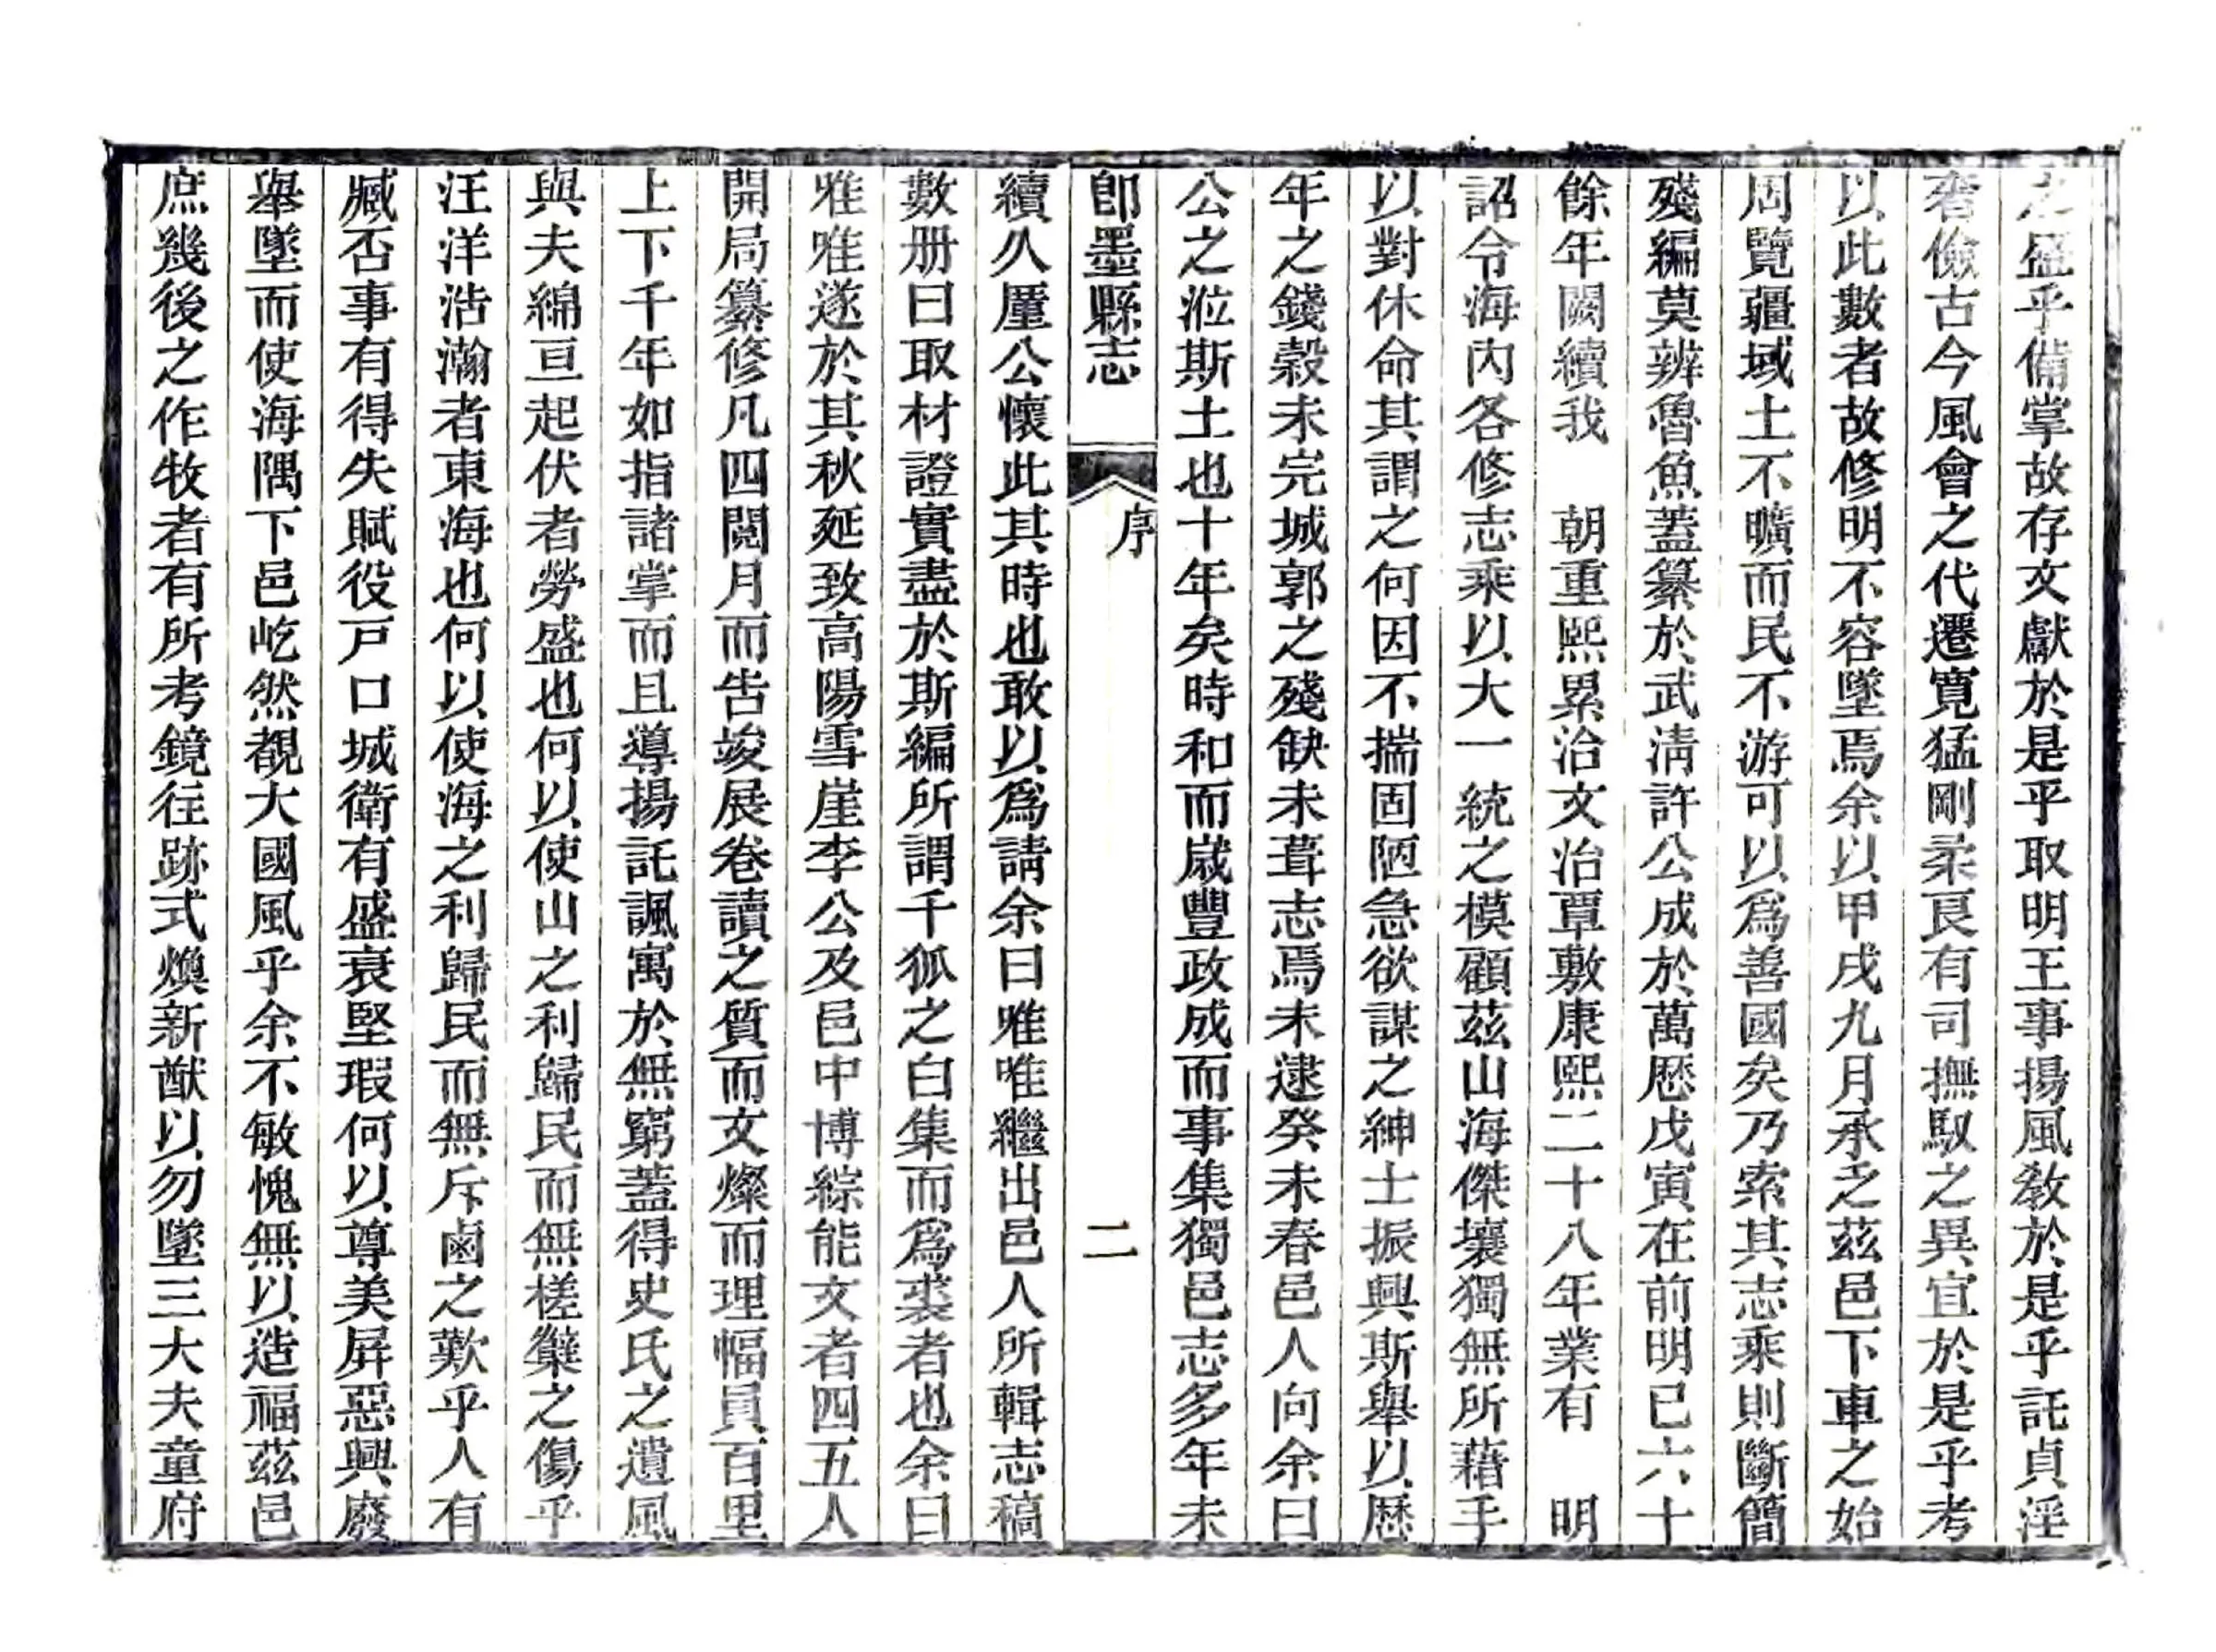 之盛乎備掌故存文獻於是乎取明王事揚風敎於是乎託貞淫
奢儉古今風會之代遷寬猛剛柔良有司撫馭之異宜於是乎考
以此數者故修明不容墜焉余以甲戌九月承乏茲邑下車之始
周覽疆域土不曠而民不游可以爲善國矣乃索其志乘則斷簡
殘編莫辨魯魚蓋纂於武淸許公成於萬歷戊寅在前明已六十
餘年闕續我 朝重熙累洽文治覃敷康熙二十八年業有 明
詔令海內各修志乘以大一統之模顧茲山海傑壤獨無所藉手
以對休命其謂之何因不揣固陋急欲謀之紳士振興斯舉以歷
年之錢穀未完城郭之殘缺未葺志焉未逮癸未春邑人向余曰
公之涖斯土也十年矣時和而歲豐政成而事集獨邑志多年未
卽墨縣志
序
二
續久厪公懷此其時也敢以爲請余曰唯唯繼出邑人所輯志稿
數册曰取材證實盡於斯編所謂千狐之白集而爲裘者也余曰
唯唯遂於其秋延致高陽雪崖李公及邑中博綜能文者四五人
開局纂修凡四閱月而告竣展卷讀之質而文燦而理幅員百里
上下千年如指諸掌而且導揚託諷寓於無窮蓋得史氏之遺風
與夫綿亘起伏者勞盛也何以使山之利歸民而無槎蘖之傷乎
汪洋浩瀚者東海也何以使海之利歸民而無斥鹵之歎乎人有
臧否事有得失賦役戸口城衛有盛衰堅瑕何以尊美屛惡興廢
舉墜而使海隅下邑屹然覩大國風乎余不敏愧無以造福茲邑
庶幾後之作牧者有所考鏡往跡式煥新猷以勿墜三大夫童府